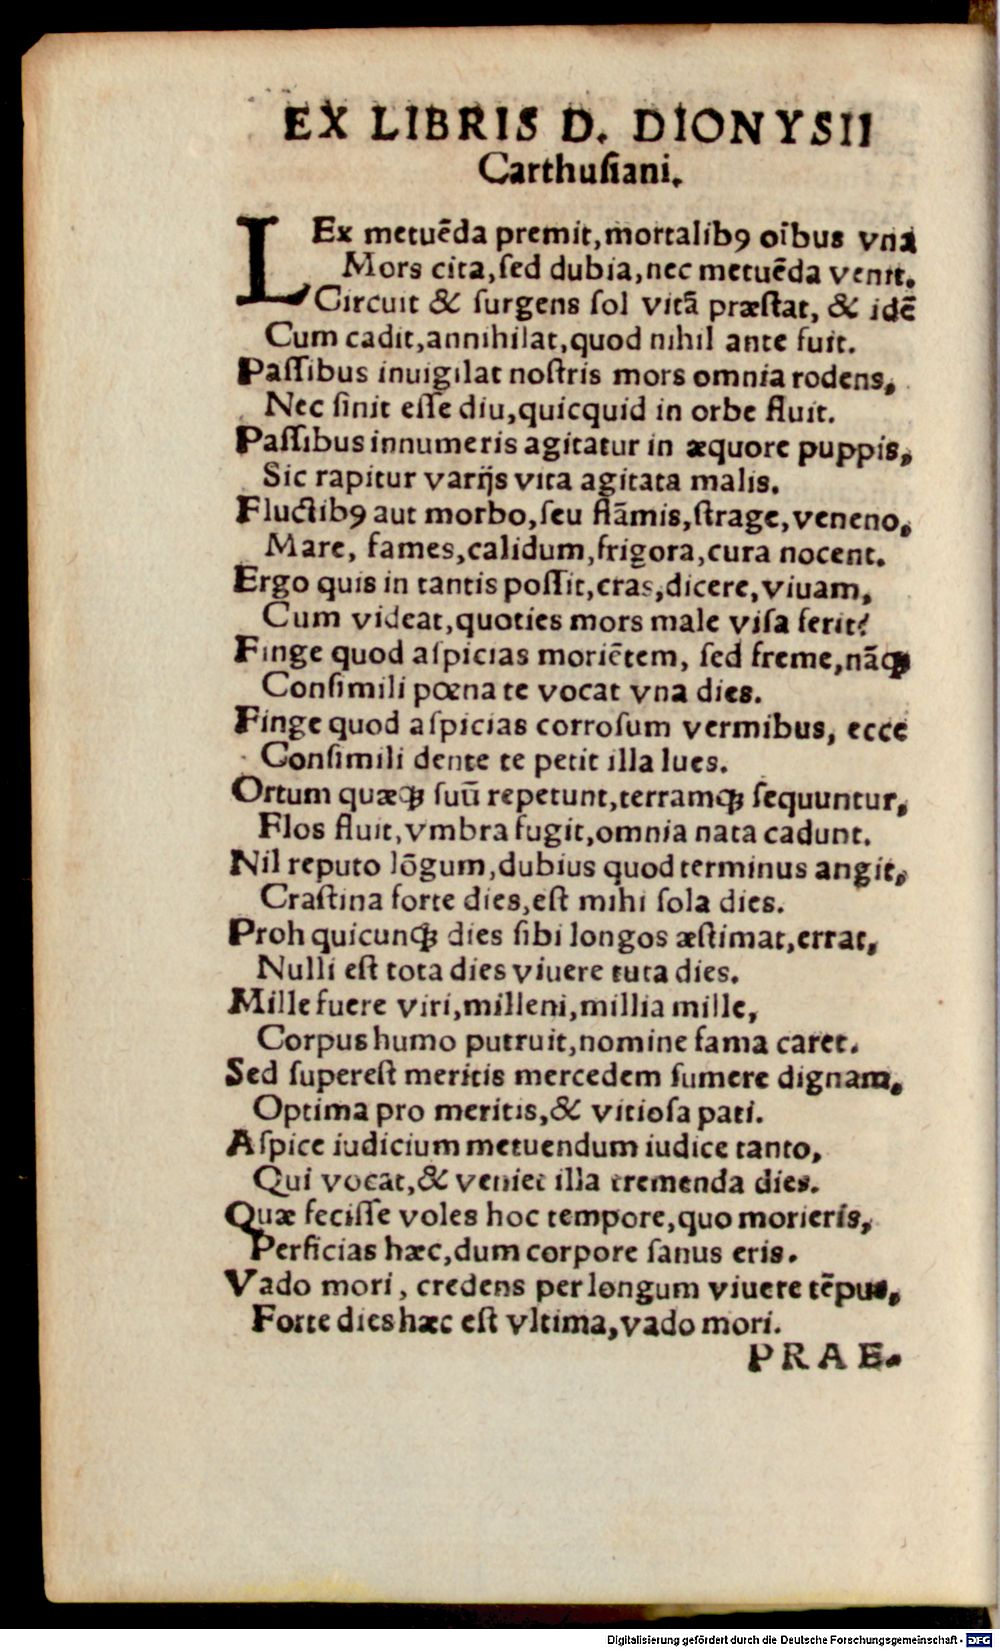 EX LIBRIS D. DIONYSII
Carthuſiani.
LEx metuēda premit, mortalibꝯ oībus vna
Mors cita, ſed dubia, nec metuēda venit.
Circuit & ſurgens ſol vitā præſtat, & idē
Cum cadit, annihilat, quod nihil ante fuit.
Paſſibus inuigilat noſtris mors omnia rodens,
Nec ſinit eſſe diu, quicquid in orbe fluit.
Paſſibus innumeris agitatur in æquore puppis,
Sic rapitur varijs vita agitata malis.
Fluctibꝯ aut morbo, ſeu flāmis, ſtrage, veneno,
Mare, fames, calidum, frigora, cura nocent.
Ergo quis in tantis poſſit, cras, dicere, viuam,
Cum videat, quoties mors male viſa ferit?
Finge quod aſpicias moriētem, ſed freme, nāqꝫ
Conſimili pœna te vocat vna dies.
Finge quod aſpicias corroſum vermibus, ecce
Conſimili dente te petit illa lues.
Ortum quæqꝫ ſuū repetunt, terramqꝫ ſequuntur,
Flos fluit, vmbra fugit, omnia nata cadunt.
Nil reputo lōgum, dubius quod terminus angit,
Craſtina forte dies, eſt mihi ſola dies.
Proh quicunqꝫ dies ſibi longos æſtimat, errat,
Nulli eſt tota dies viuere tuta dies.
Mille fuere viri, milleni, millia mille,
Corpus humo putruit, nomine fama caret.
Sed ſupereſt meritis mercedem ſumere dignam,
Optima pro meritis, & vitioſa pati.
Aſpice iudicium metuendum iudice tanto,
Qui vocat, & veniet illa tremenda dies.
Quæ feciſſe voles hoc tempore, quo morieris,
Perficias hæc, dum corpore ſanus eris.
Vado mori, credens per longum viuere tēpus,
Forte dies hæc eſt vltima, vado mori.
PRAE-
Digitalisierung gefördert durch die Deutsche Forschungsgemeinschaft - DFG